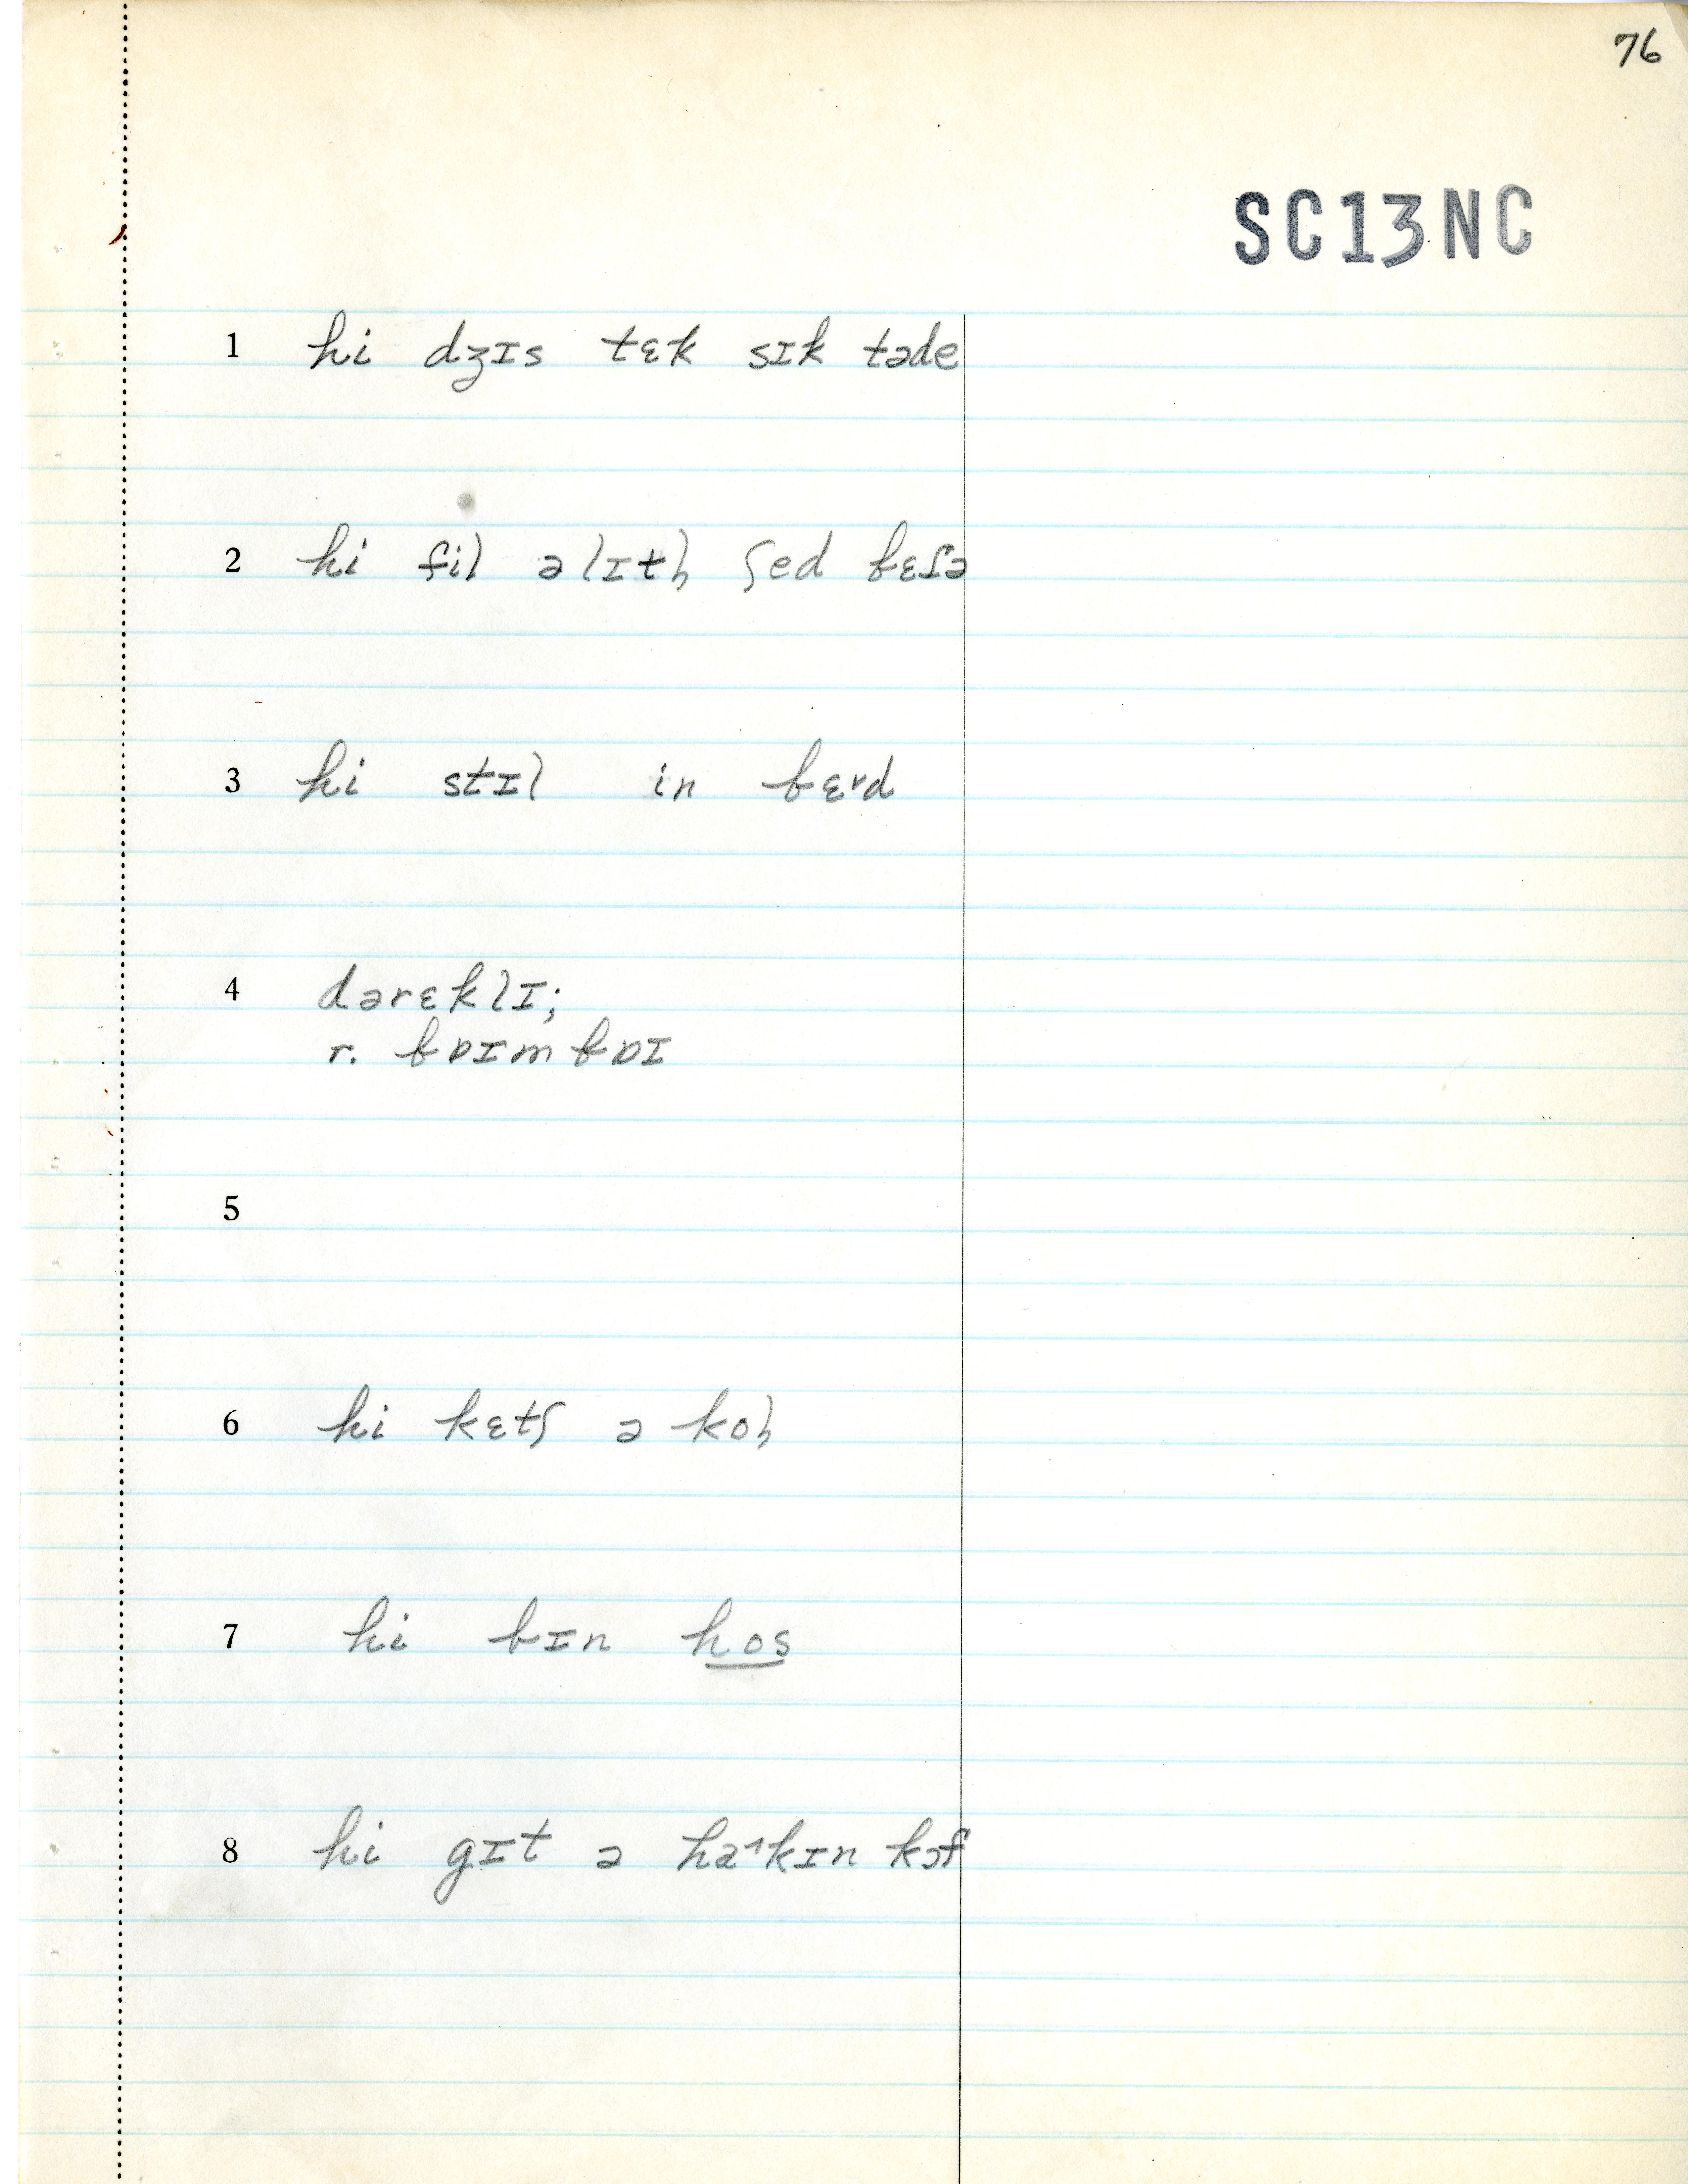 76
SC13NC
1 hi dʒɪs tɛk sɪk təde
2 hi fil əlɪtḷ ʃed bɛʃə
3 hi stɪl in bɛrd
4 dərɛklɪ;
r. bɒɪmbɒɪ
5
6 hi kɛtʃ ə koḷ
7 hi bɪn hos
8 hi gɪt ə haˆkɪn kɔf